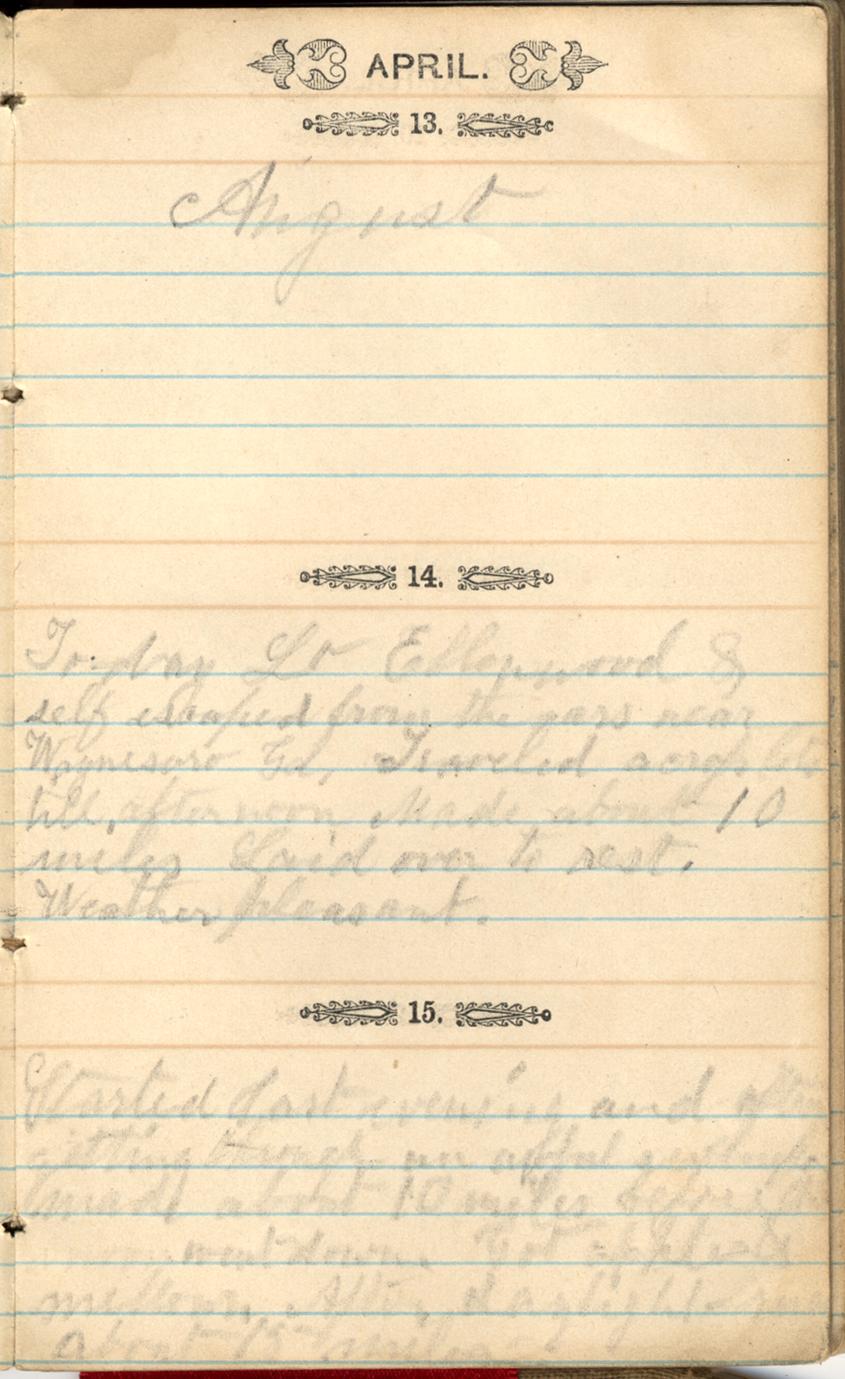 APRIL.
13.
August
14.
To-day Lt Ellenwood &
self escaped from the cars near
Waynesboro Ga, Traveled across lots
till, afternoon, Made about 10
miles Laid over to rest.
Weather pleasant.
15.
Started last evening and after
getting through an awful swamp
made about 10 miles before the
moon went down. Got apples &
mellons. After daylight
about 1/2 miles